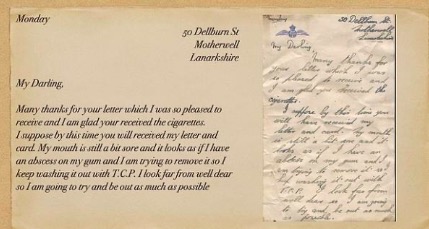 Monday
50 Dellburn St
Motherwell
Lanarkshire
My Darling,
Many thanks for your letter which I was so pleased to
receive and I am glad your received the cigarettes.
I suppose by this time you will received my letter and
card. My mouth is still a bit sore and it looks as if I have
an abscess on my gum and I am trying to remove it so I
keep washing it out with T.C.P. I look far from well dear
so I am going to try and be out as much as possible
50 Dellburn St
Motherwell
Lanarkshire
My Darling,
Many thanks for
your letter which I was
so pleased to receive and
I am glad you received the
cigarettes.
I suppose by this time you
will have received my
letter and card. My mouth
is still a bit sore and it
looks as if I have an
abscess on my gum and I
am trying to remove it so I
washing it out with
T.C.P. I look far from
well dear so I am going
to try and be out as much
as possible